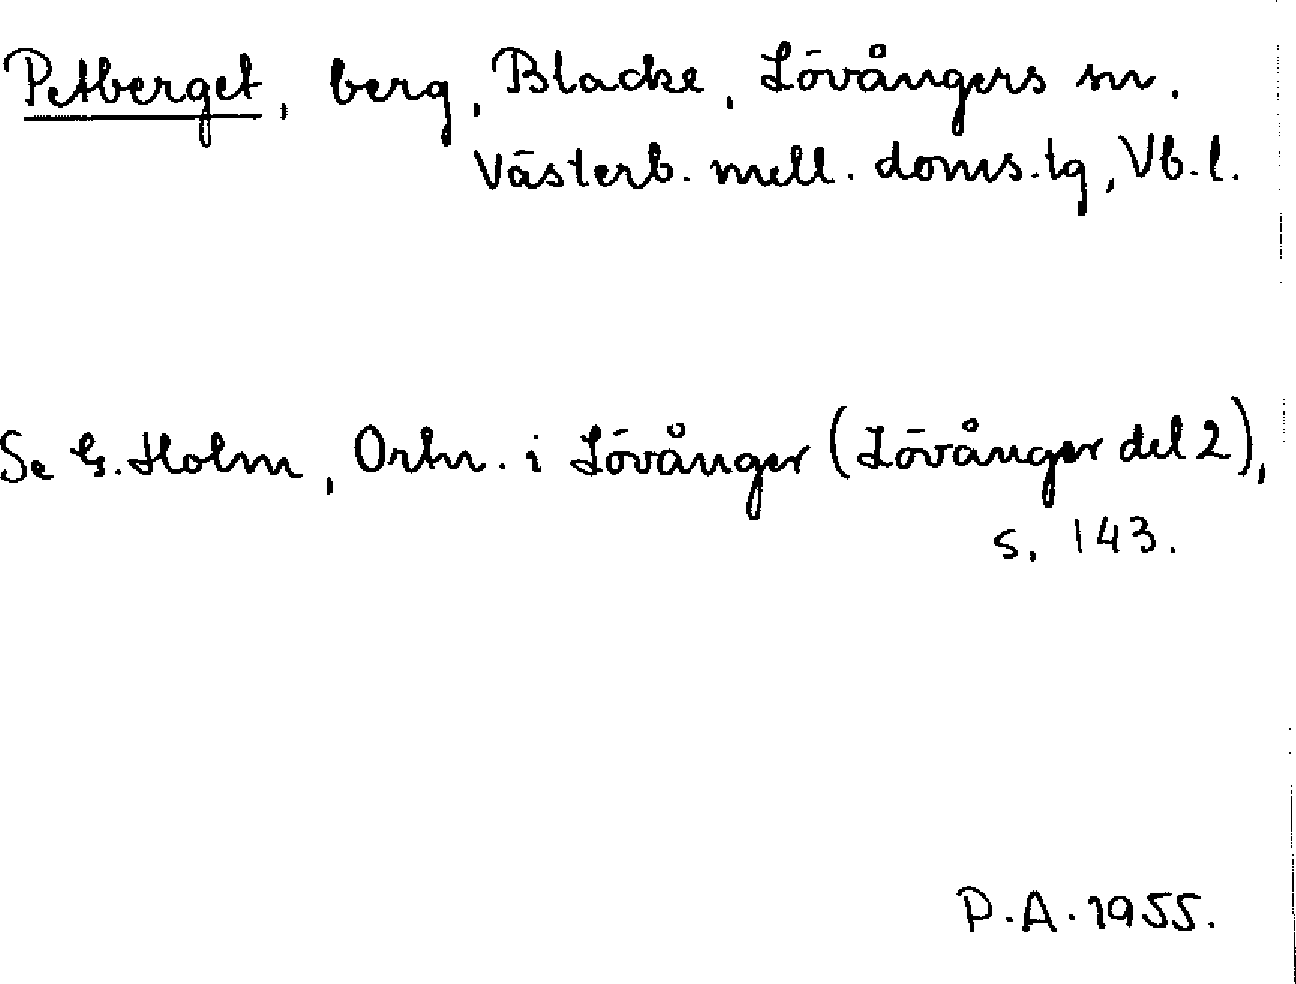 Petberget, berg, Blacke, Lövångers sn.
Västerb. mell. doms.tg, Vb. l.
Se G. Holm, Ortn. i Lövånger (Lövånger del 2),
s. 143.
P.A. 1955.